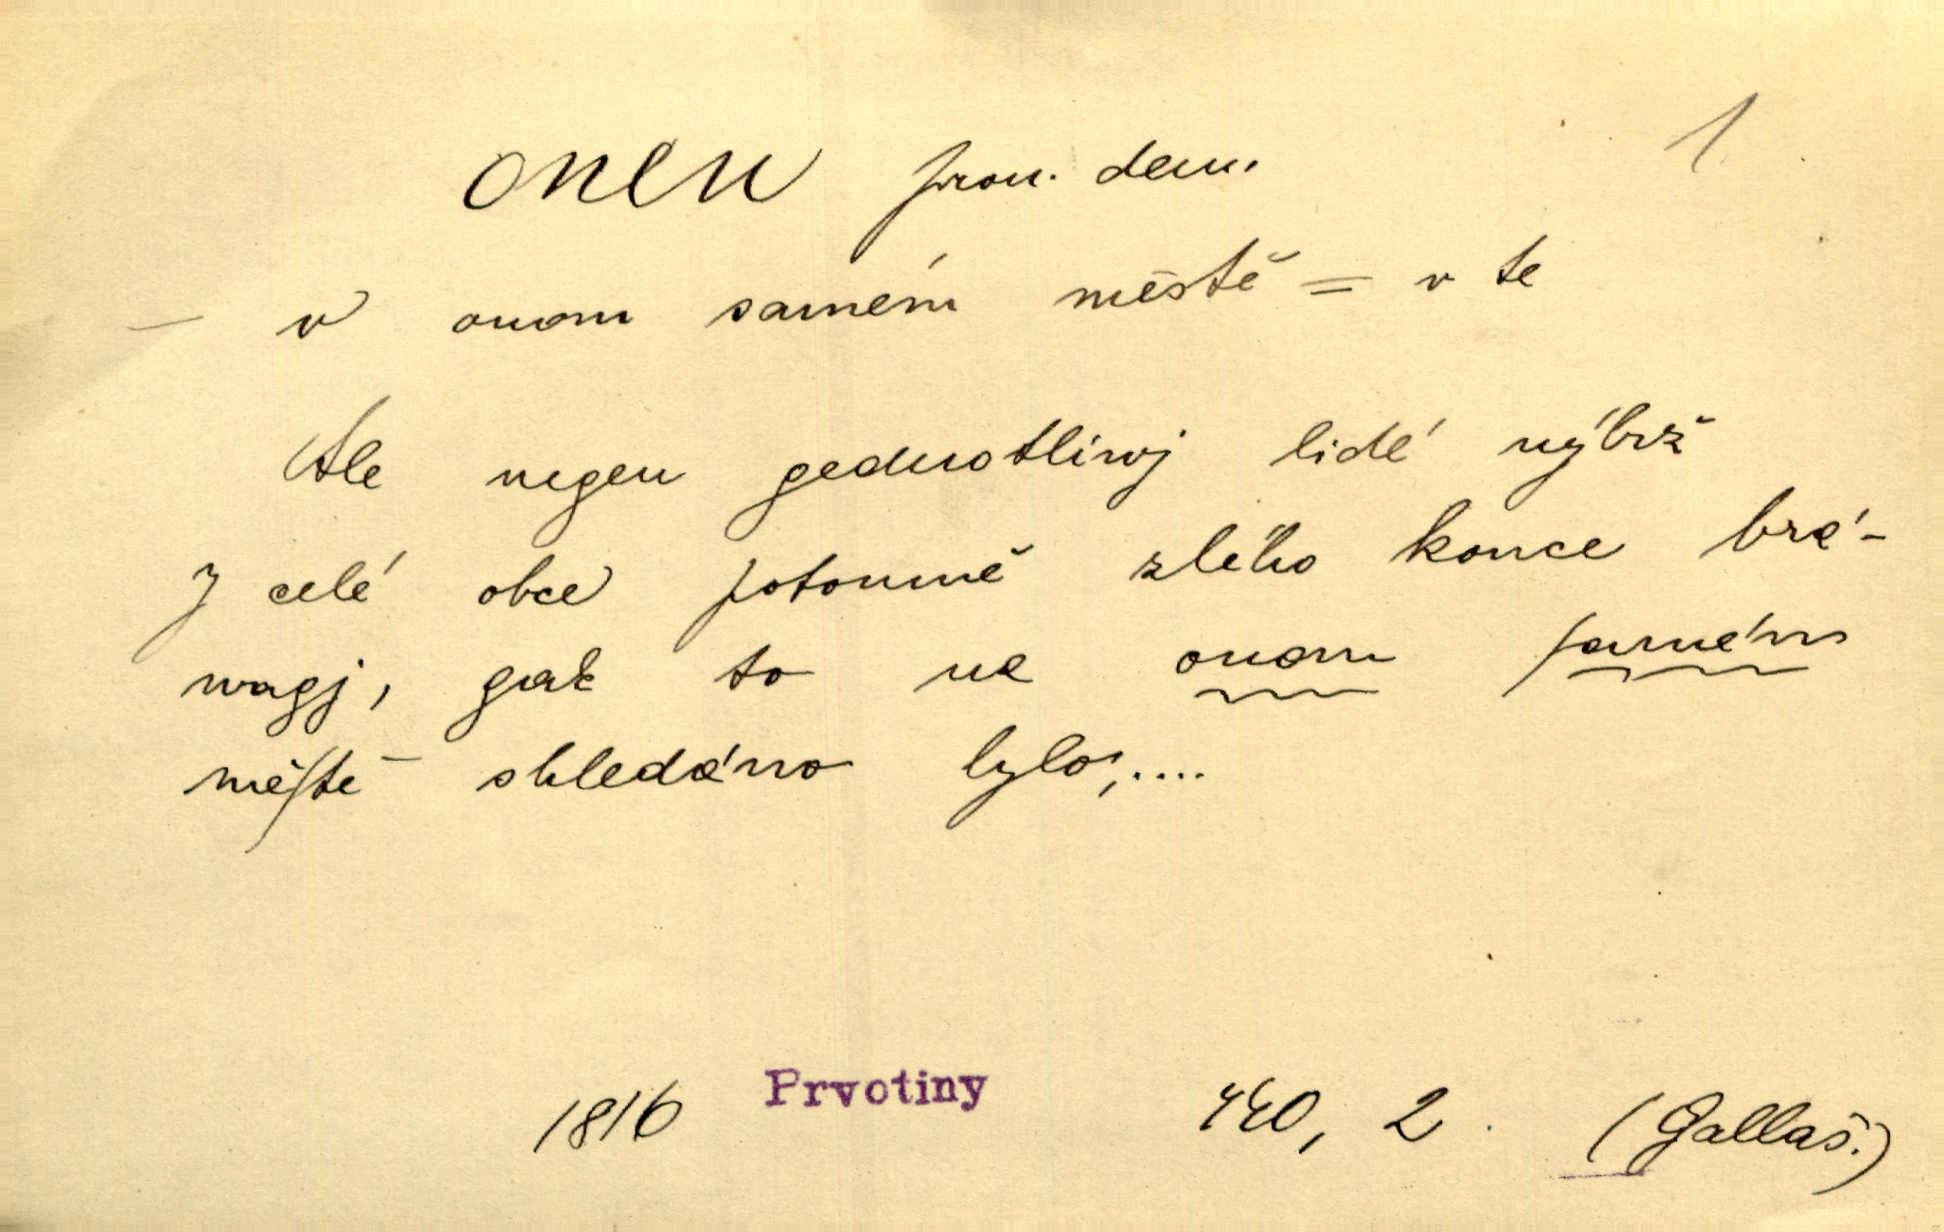 onen pron. dem. 1
— v onom samém městě = v te
Ale negen gednotliwj lidé nýbrž
J celé obce potomně zlého konce brá-
wagj, gak to na onom ſamém
měſtě shledáno bylo,....
1816 Prvotiny 440, 2. (Gallaš.)